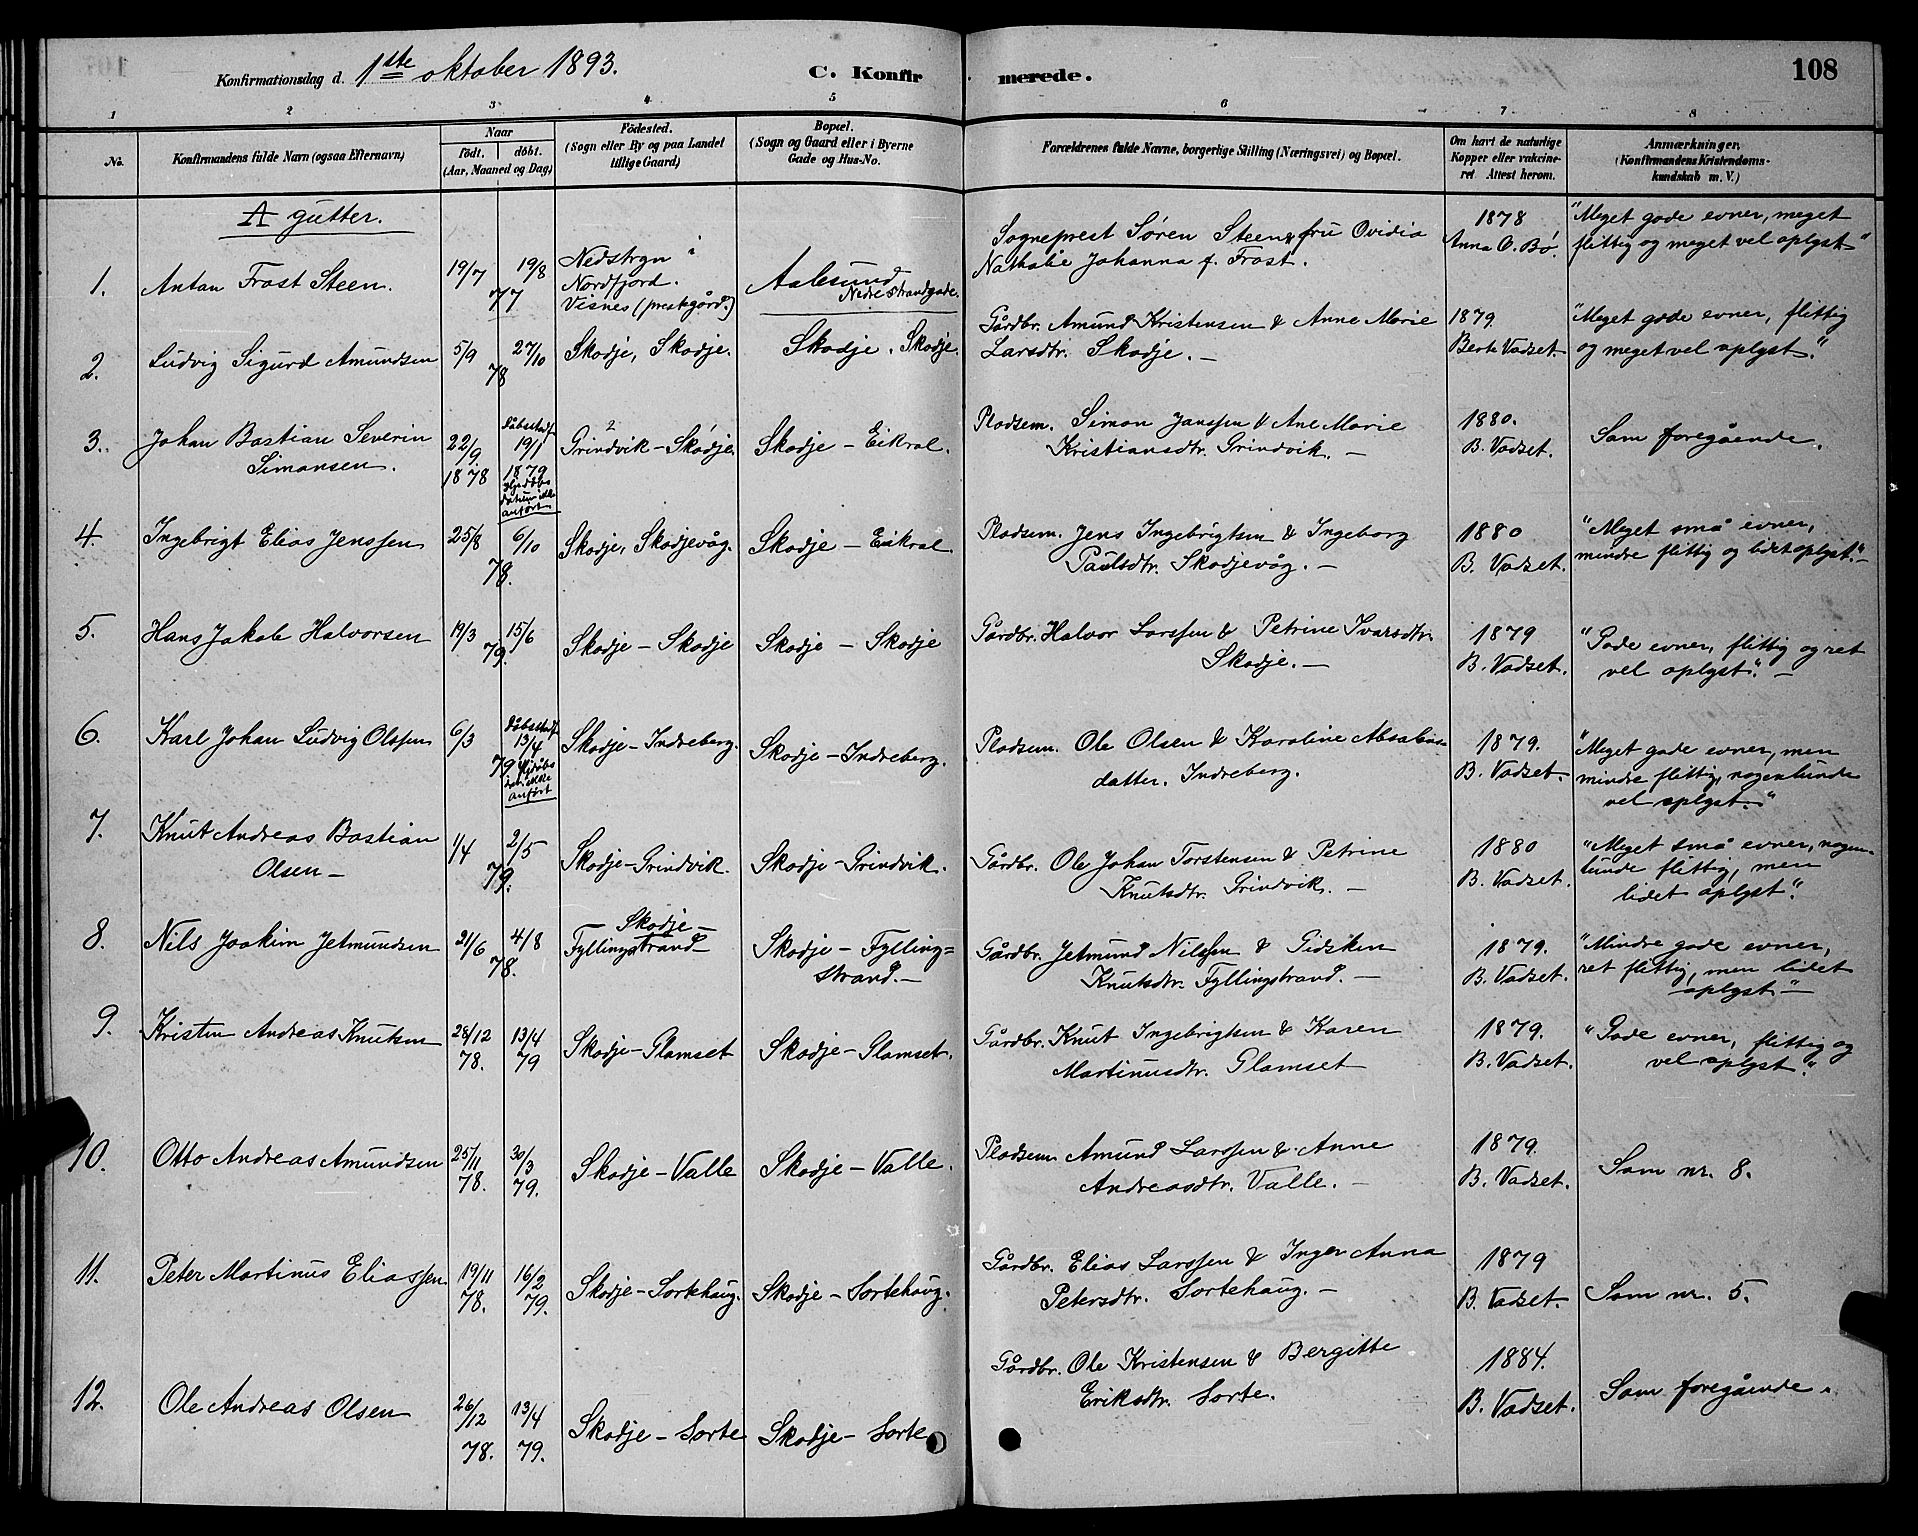 Konfirmationsdag d. 1ste oktober 1893.
C. Konfirmerede.
108
1 2 3 4 5 6 7 8
No.
Konfirmandens fulde Navn (ogsaa Efternavn)
Naar
født. døbt.
(Aar, Maaned og Dag)
Födested.
(Sogn eller By og paa Landet
tillige Gaard)
Bopæl.
(Sogn og Gaard eller i Byerne
Gade og Hus-No.
Forældrenes fulde Navne, borgerlige Stilling (Næringsvei) og Bopæl.
Om havt de naturlige
Kopper eller vakcine-
ret Attest herom.
Anmærkninger.
(Konfirmandens Kristendoms-
kundskab m. V.)
A gutter.
1. Anton Frost Steen.
19/7 19/8
77
Nedstryn i
Nordfjord.
Visnes (prestgård.)
Aalesund
Nedre strandgade.
Sogneprest Søren Steen & fru Ovidia
Nathalie Johanna f. Frost.
1878
Anna O. Bø.
"Meget gode evner, meget
flittig og meget vel oplyst"
2. Ludvig Sigurd Amundsen
5/9 27/10
78
Skodje, Skodje.
Skodje. Skodje.
Gårdbr. Amund Kristensen & Anne Marie
Larsdtr. Skodje. —
1879.
Berte Vadset.
"Meget gode evner, flittig
og meget vel oplyst."
3. Johan Bastian Severin
Simonsen.
22/9
1878
19/1
1879
anført
Grindvik - Skodje.
Skodje - Eikrol.
Pladsem. Simon Janssen & Ane Marie
Kristiansdtr. Grindvik. —
1880.
B. Vadset.
Som foregående.
4. Ingebrigt Elias Jenssen
25/8 6/10
78.
Skodje, Skodjevåg.
Skodje - Eikrol.
Pladsem. Jens Ingebrigtsen & Ingeborg
Paulsdtr. Skodjevåg. —
1880
B. Vadset.
"Meget små evner,
mindre flittig og lidet oplyst." —
5. Hans Jakob Halvorsen
19/3 15/6
79.
Skodje - Skodje
Skodje - Skodje
Gårdbr. Halvor Larssen & Petrine Ivarsdtr.
Skodje. —
1879
B. Vadset.
"Gode evner, flittig og ret
vel oplyst." —
6. Karl Johan Ludvig Olssen
6/3 13/4
79
ikke
anført
Skodje - Indreberg.
Skodje - Indreberg.
Pladsem. Ole Olsen & Karoline Absalons-
datter. Indreberg.
1879.
B. Vadset.
"Meget gode evner, men
mindre flittig, nogenlunde
vel oplyst."
7. Knut Andreas Bastian
Olsen —
1/4 2/5
79.
Skodje - Grindvik.
Skodje - Grindvik.
Gårdbr. Ole Johan Torstensen & Petrine
Knutsdtr. Grindvik. —
1880
B. Vadset.
"Meget små evner, nogen-
lunde flittig, men
lidet oplyst."
8. Nils Joakim Jetmundsen
21/6 4/8
78.
Skodje -
Fyllingstrand
Skodje - Fylling=
strand. —
Gårdbr. Jetmund Nilssen & Gidsken
Knutsdtr. Fyllingstrand. —
1879.
B. Vadset.
"Mindre gode evner,
ret flittig, men lidet
oplyst" —
9. Kristen Andreas Knutsen
28/12 13/4
78. 79
Skodje - Glamset
Skodje - Glamset.
Gårdbr. Knut Ingebrigtsen & Karen
Martinusdtr. Glamset
1879.
B. Vadset.
"Gode evner, flittig og
vel oplyst."
10. Otto Andreas Amundsen
25/11 30/3
78. 79.
Skodje - Valle
Skodje - Valle.
Pladsem. Amund Larssen & Anne
Andreasdtr. Valle. —
1879.
B. Vadset.
Som nr. 8.
11. Peter Martinus Eliassen
19/11 16/2
78. 79.
Skodje - Sortehaug.
Skodje - Sortehaug.
Gårdbr. Elias Larssen & Inger Anna
Petersdtr. Sortehaug. —
1879
B. Vadset.
Som nr. 5.
12. Ole Andreas Olsen
26/12 13/4
78. 79.
Skodje - Sorte
Skodje - Sorte
Gårdbr. Ole Kristensen & Bergitte
Eriksdtr. Sorte.
1884.
B. Vadset.
Som foregående.